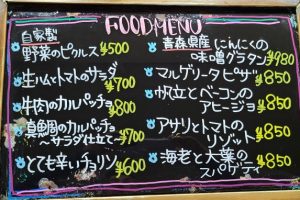 FOOD MENU
自家製
野菜のピクルス ¥500
生ハムとトマトのサラダ
¥700
牛肉のカルパッチョ
¥800
真鯛のカルパッチョ
〜サラダ仕立て〜 ¥700
とても辛いチョリソ ¥600
青森県産 にんにくの
味噌グラタン ¥980
マルゲリータピザ ¥850
帆立とベーコンの
アヒージョ ¥850
アサリとトマトの
リゾット ¥850
海老と大葉の
スパゲティ ¥850